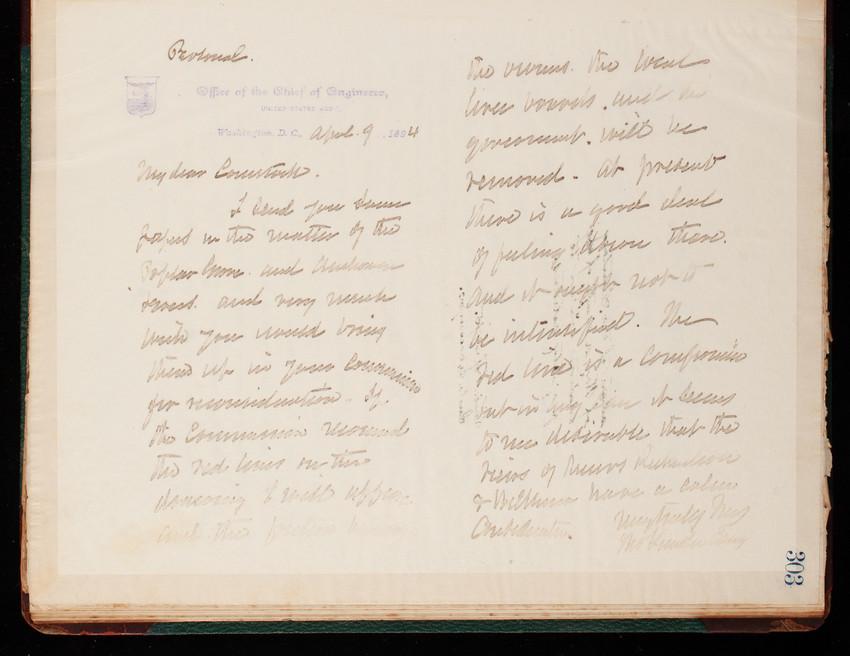 Personal.
Office of the Chief of Engineers,
UNITED STATES ARMY,
Washington, D. C., April 9, 1894
My dear Comstock.
I send you some
papers in the matter of the
Poplar Grove and
and very much
wish you would bring
them up in your Commission
for reconsideration. If
the Commission recommend
the red lines on this
drawing I will approve
and the
the owners. the local
levee boards. and the
government. will be
removed. At present
there is a good deal
of feeling down there.
and it ought not to
be intensified. The
red line is a compromise
but in any case it seems
to me desirable that the
views of Messrs Richardson
& have a calm
Consideration. Very truly yours
303